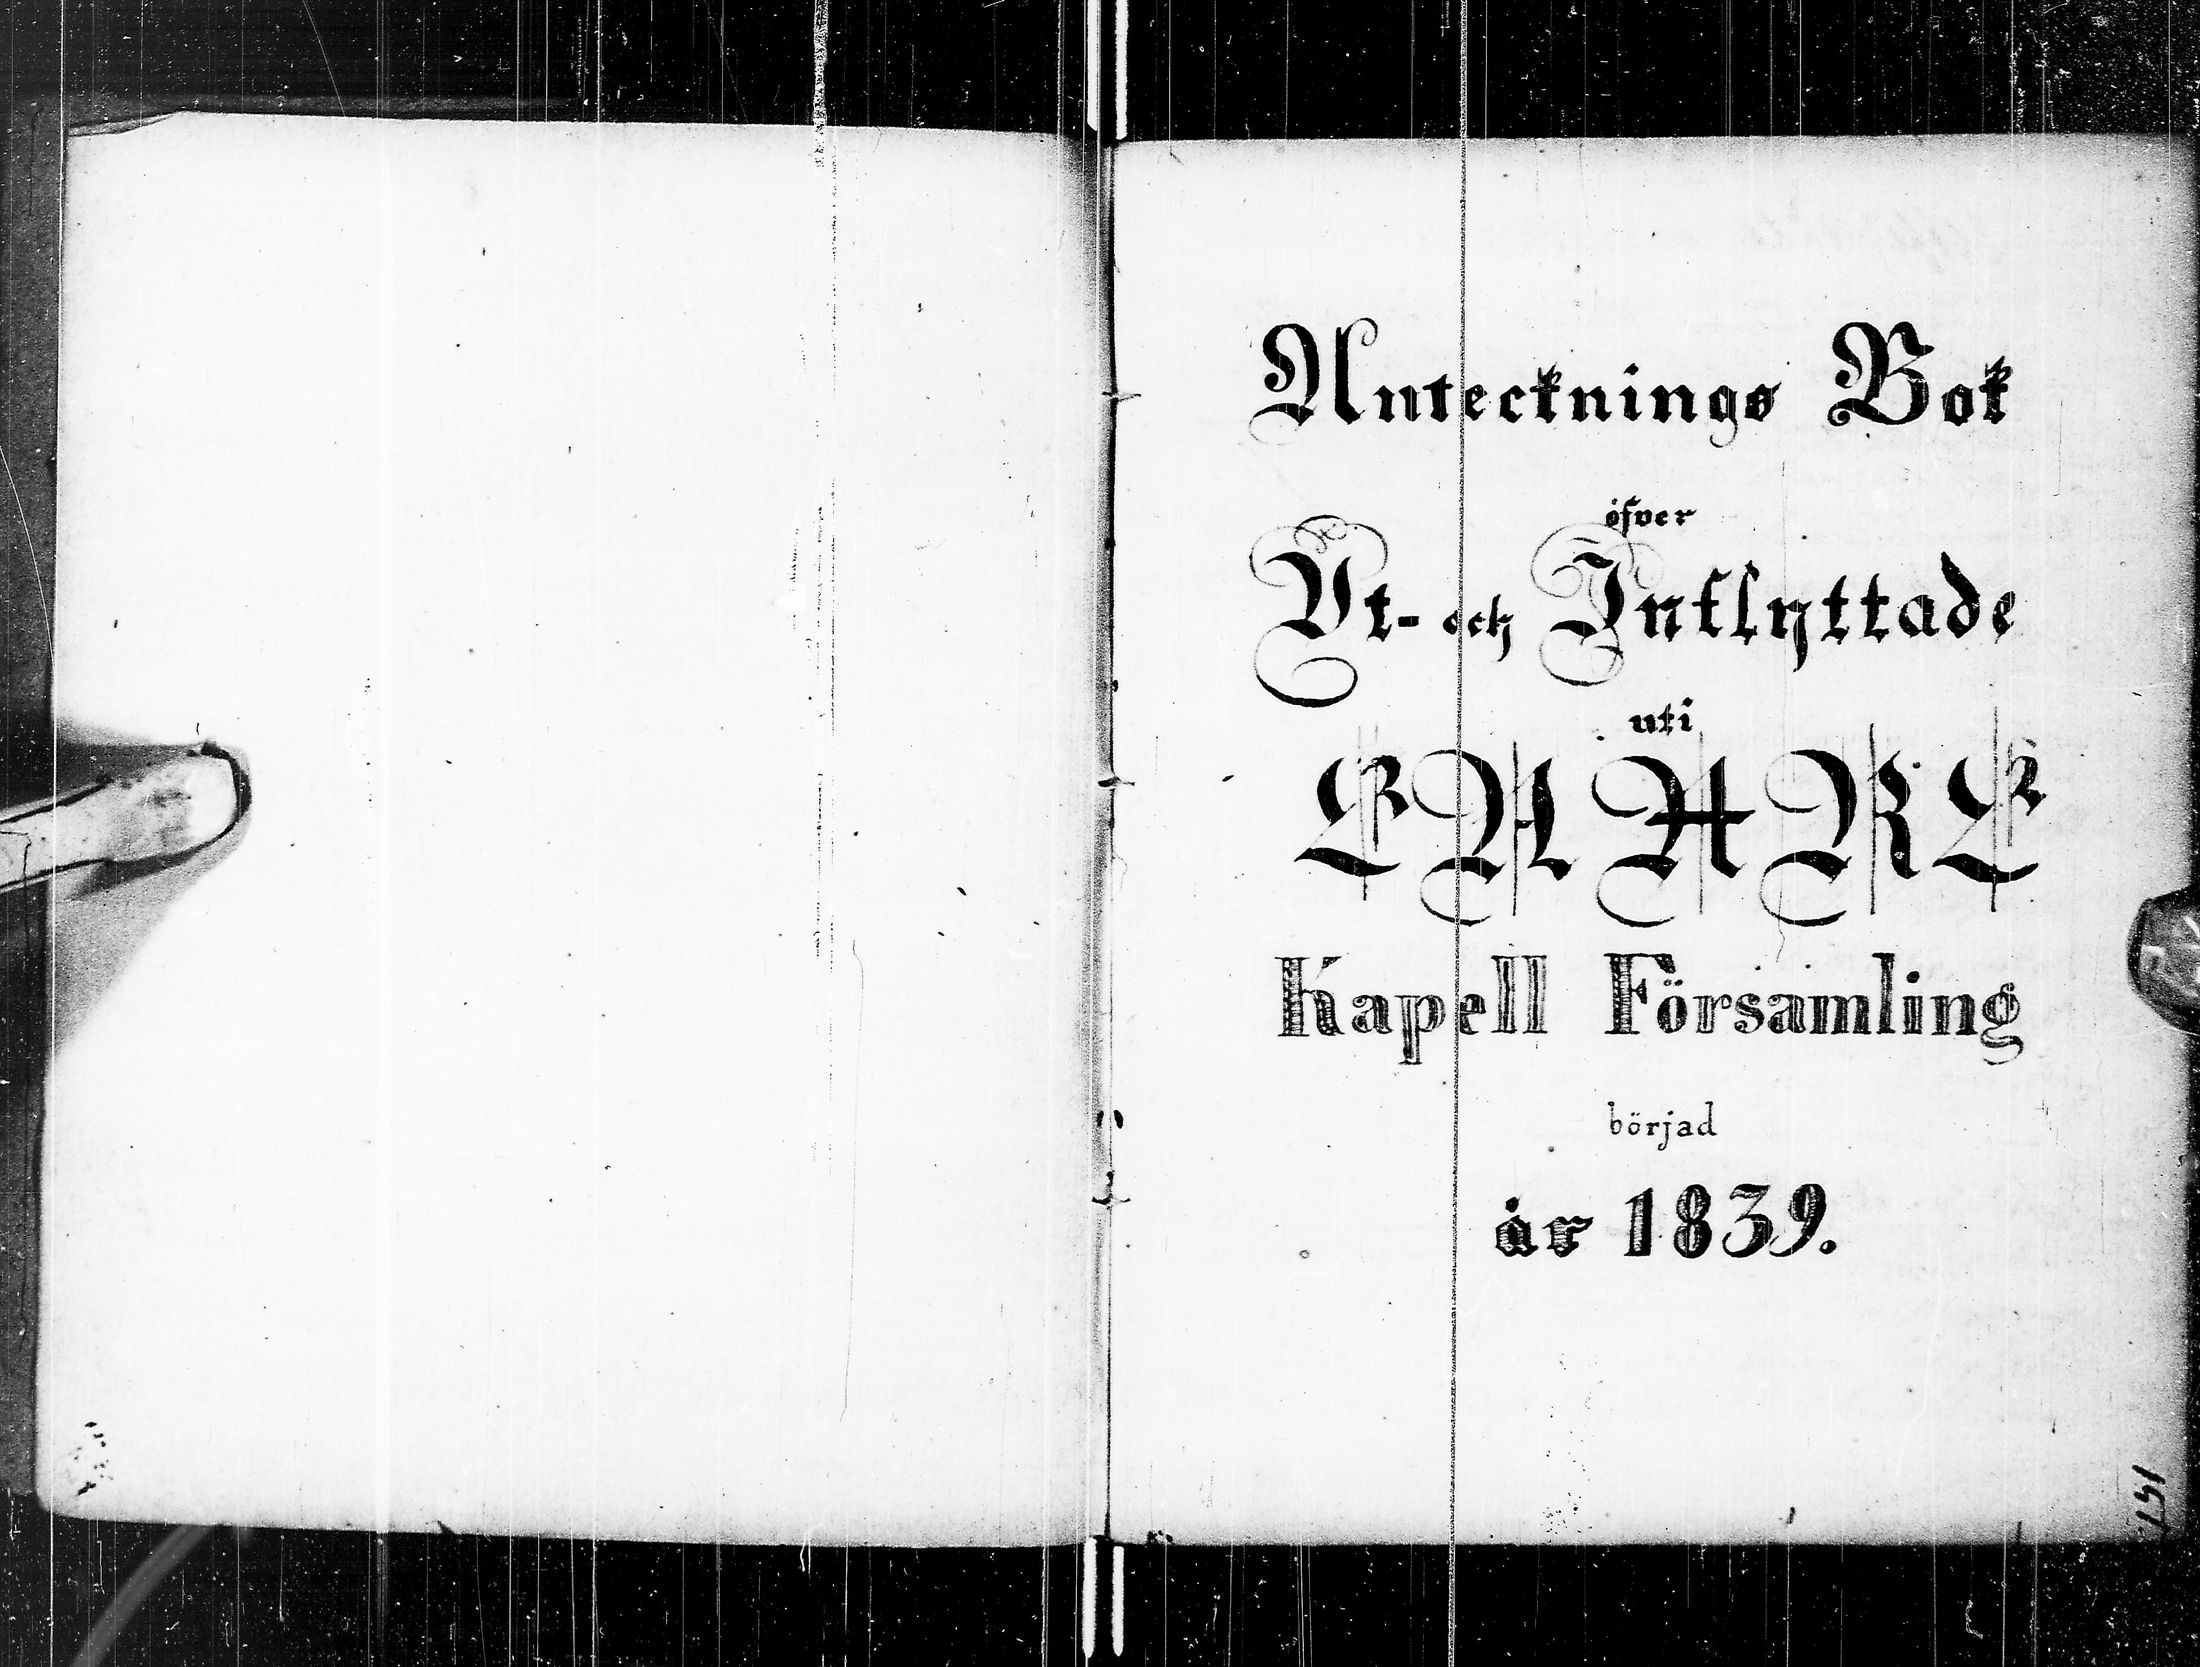 Antecknings Bok
öfver
Ut- och Inflyttade
uti
ENARE
Kapell Församling
börjad
år 1839.
157.